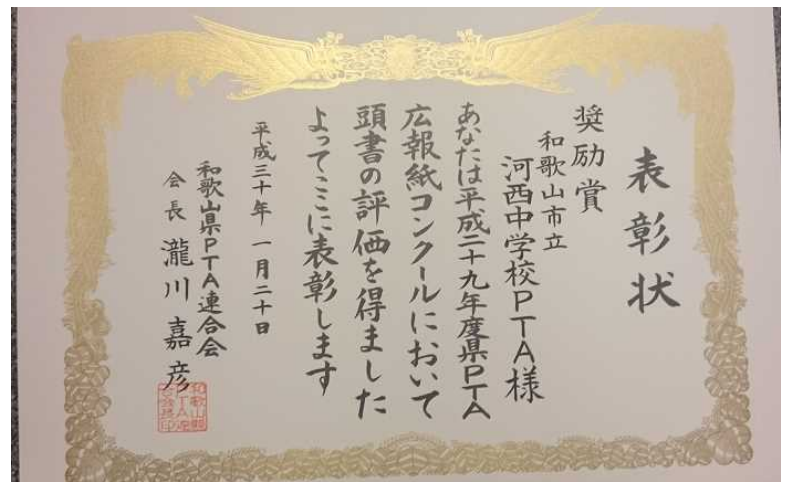 表彰状
奨励賞
和歌山市立
河西中学校PTA様
あなたは平成二十九年度県PTA
広報紙コンクールにおいて
頭書の評価を得ました
よってここに表彰します
平成三十年一月二十日
和歌山県PTA連合会
会長 瀧川嘉彦